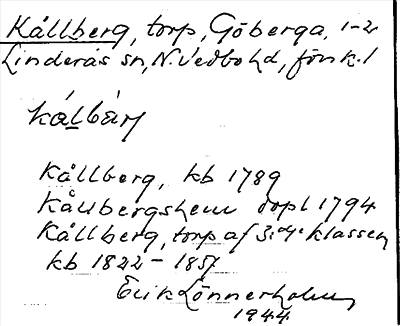 Kållberg, torp, Göberga, 1-2
Linderås sn, N. Vedbo hd, Jönk. l
kálbärj
Kållberg, kb 1789
Kållbergshem dopl 1794
Kållberg, torp af 3:dje klassen
kb 1822 - 1857
Erik Lönnerholm
1944